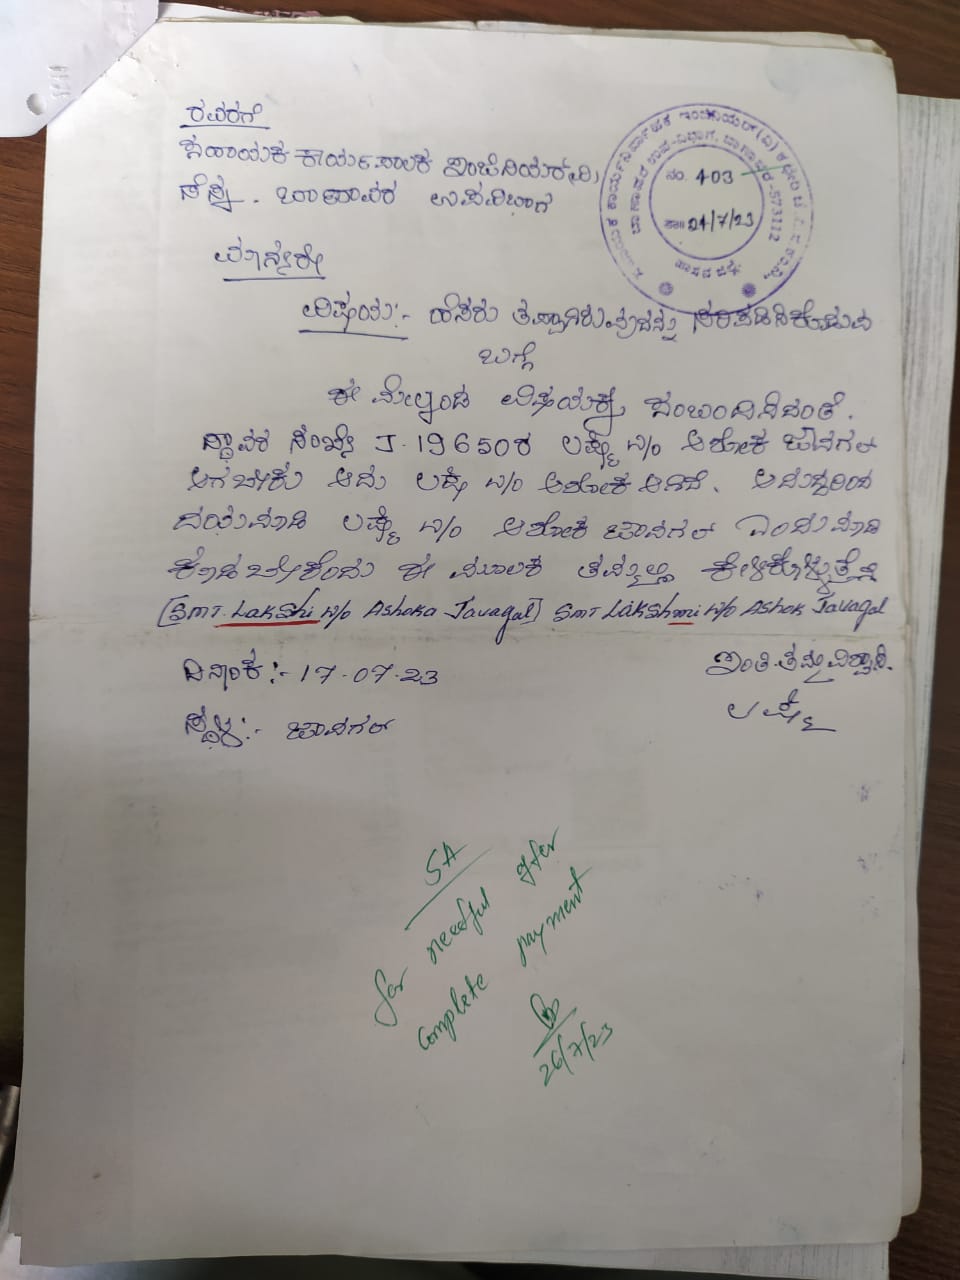 ರವರಿಗೆ
ಸಹಾಯಕ ಕಾರ್ಯಪಾಲಕ ಇಂಜಿನಿಯರ್
ಉಪವಿಭಾಗ
ಮಾನ್ಯರೇ
ವಿಷಯ:- ಹೆಸರು ತಪ್ಪಾಗಿರುವುದನ್ನು ಸರಿಪಡಿಸಿಕೊಡುವ
ಬಗ್ಗೆ
ಈ ಮೇಲ್ಕಂಡ ವಿಷಯಕ್ಕೆ ಸಂಬಂದಿಸಿದಂತೆ.
ಸ್ಥಾವರ ಸಂಖ್ಯೆ J-19650ರ ಲಕ್ಷ್ಮೀ W/O ಅಶೋಕ ಜಾವಗಲ್
ಆಗಬೇಕು ಅದು ಲಕ್ಷಿ W/O ಅಶೋಕ ಆಗಿದೆ. ಆದ್ದರಿಂದ
ದಯಮಾಡಿ ಲಕ್ಷ್ಮೀ W/O ಅಶೋಕ ಜಾವಗಲ್ ಎಂದು ಮಾಡಿ
ಕೊಡಬೇಕೆಂದು ಈ ಮೂಲಕ ತಮ್ಮಲ್ಲಿ ಕೇಳಿಕೊಳ್ಳುತ್ತೇನೆ
[SMT. Lakshi W/o Ashoka Javagal] SMT Lakshmi W/o Ashok Javagal
ದಿನಾಂಕ:- 17-07-23
ಇಂತಿ ತಮ್ಮ ವಿಶ್ವಾಸಿ.
ಸ್ಥಳ:- ಜಾವಗಲ್
ಲಕ್ಷ್ಮೀ
ನಂ. 403
ದಿನಾಂಕ 24/7/23
573112
ಹಾಸನ ಜಿಲ್ಲೆ
SA
for needful after
complete payment
26/7/23